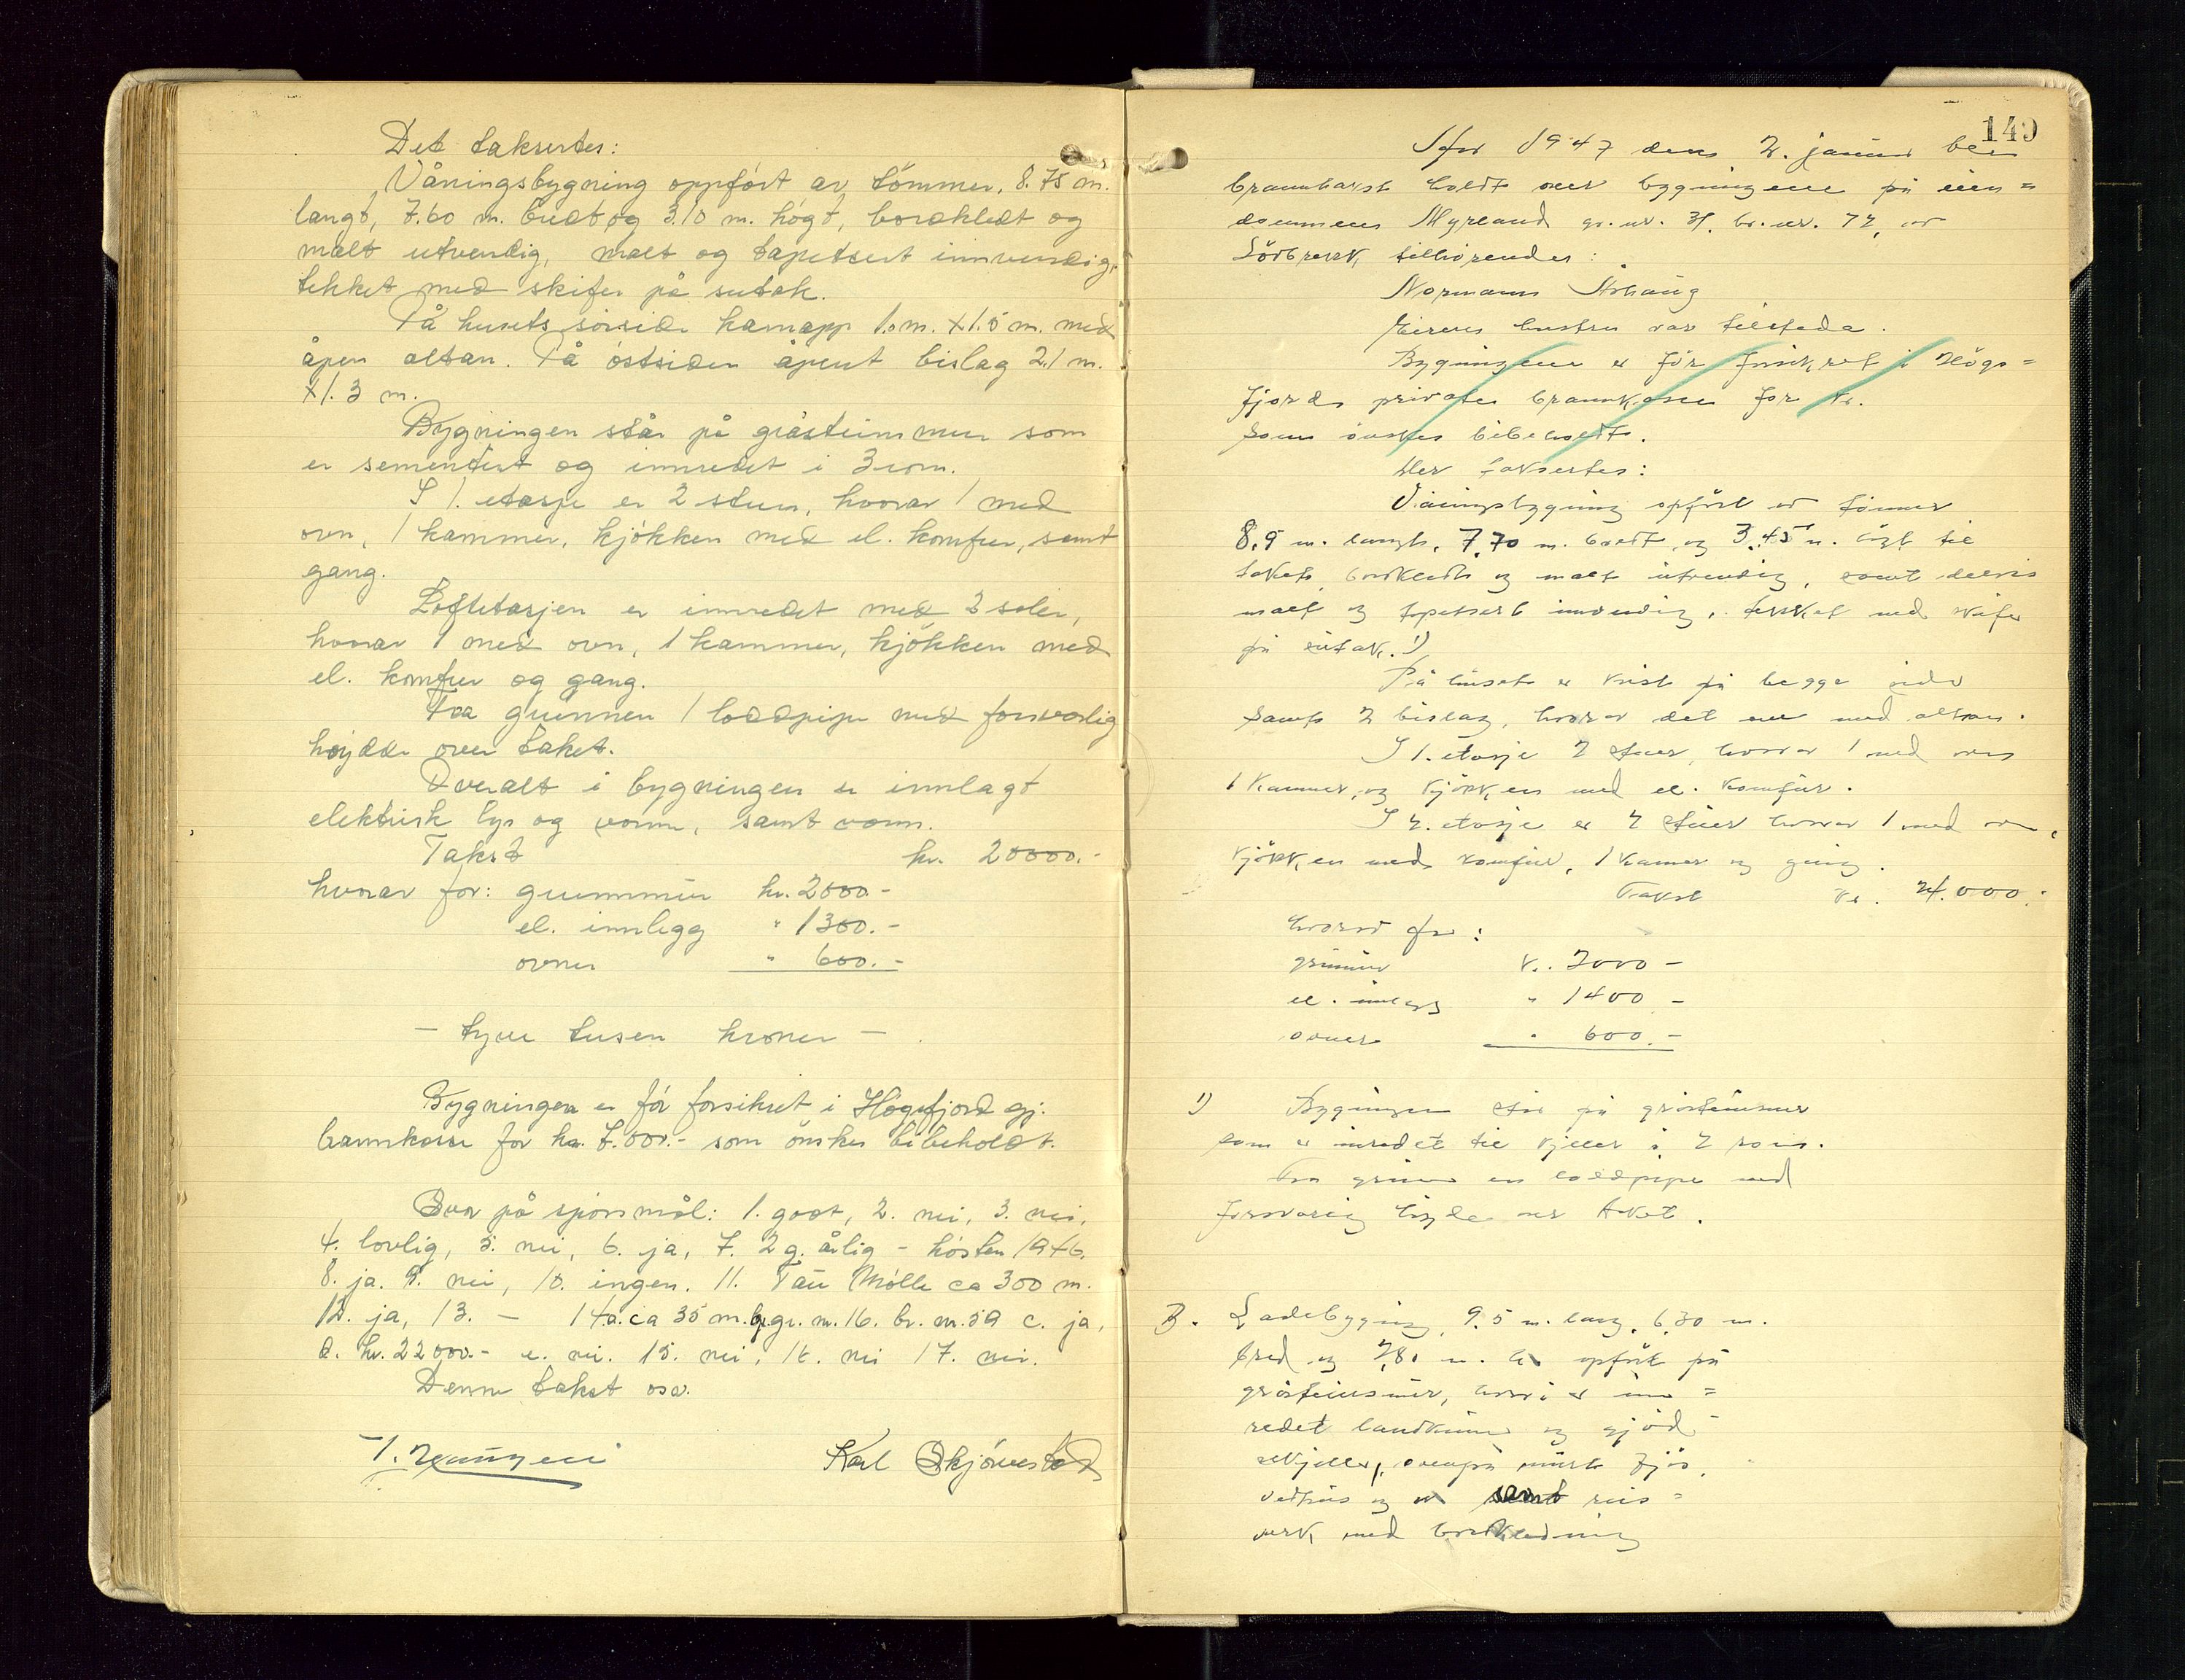 Det taksertes:
Våningsbygning oppført av tömmer, 8.75 m.
langt, 7.60 m. bredt og 3.10 m. høgt, bordkledt og
malt utvendig, malt og tapetsert innvendig,
tekket med skifer på sutak.
På husets sørside karnapp 1.0 m. x 1.5 m. med
åpen altan. På østsiden åpent bislag 2.1 m.
x 1.3 m.
Bygningen står på gråsteinmur som
er sementert og innredet i 3 rom.
I 1. etasje er 2 stuer, hvorav 1 med
ovn, 1 kammer, kjøkken med el. komfur, samt
gang.
Loftetasjen er innredet med 3 soler,
hvorav 1 med ovn, 1 kammer, kjøkken med
el. komfur og gang.
Fra grunnen 1 loddpipe med forsvarlig
høydde over taket.
Overalt i bygningen er innlagt
elektrisk lys og varme, samt vann.
Takst kr. 20000.-
hvorav for: grunnmur kr. 2000.-
el. innlegg " 1300.-
ovner " 600.-
- tyve tusen kroner -
Bygningen er før forsikret i Høgsfjord gj.
brannkasse for kr. 7.000.- som ønskes bibeholdt.
Svar på spørsmål: 1. godt, 2. nei, 3. nei,
4. lovlig, 5. nei, 6. ja, 7. 2 g. årlig - høsten 1946.
8. ja. 9. nei, 10. ingen. 11. Tau Mølle ca 300 m.
12. ja, 13. - 14a. ca 35 m. b. gr. nr. 16. br. nr. 59 c. ja,
d. kr. 22000.- e. nei. 15. nei, 16. nei 17. nei.
Denne takst osv.
Karl Skjørestad
149
År 1947 den 2. januar ble
branntakst holdt over bygningene på eien=
dommen Myrland gr. nr. 31. br. nr. 72, av
tilhørende:
Normann
Eierens hustru var tilstede.
Bygningene er før forsikret i Høgs=
fjords private brannkasse for kr.
som ønskes bibeholdt.
Der taksertes:
Våningsbygning opført av tømmer
8,9 m. langt, 7,70 m. bredt og 3,45 m. høgt til
taket, bordkledt og malt utvendig, samt delvis
malt og tapetsert innvendig, tekket med skifer
på sutak. 1)
På huset er kvist på begge sider
samt 2 bislag, hvorav det ene med altan.
I 1. etasje 2 stuer, hvorav 1 med ovn
1 kammer, og kjøkken med el. komfur.
I 2. etasje er 2 stuer hvorav 1 med ovn,
kjøkken med komfur, 1 kamer og gang.
Takst kr. 24.000.-
hvorav for:
grunmur kr. 2000 -
el. innlegg " 1400 -
ovner " 600.-
1) Bygningen står på gråsteinsmur
som er inredet til kjeller i 2 rom.
Fra grunn en loddpipe med
forsvarlig høyde over taket.
B. Ladebygning, 9.5 m. lang, 6,30 m.
bred og 2,80 m. opført på
gråsteinsmur, hvori er inn=
redet landkum og gjød-
selkjeller, ovenpå murt fjøs,
vedhus og samt reis=
verk med bordkledning